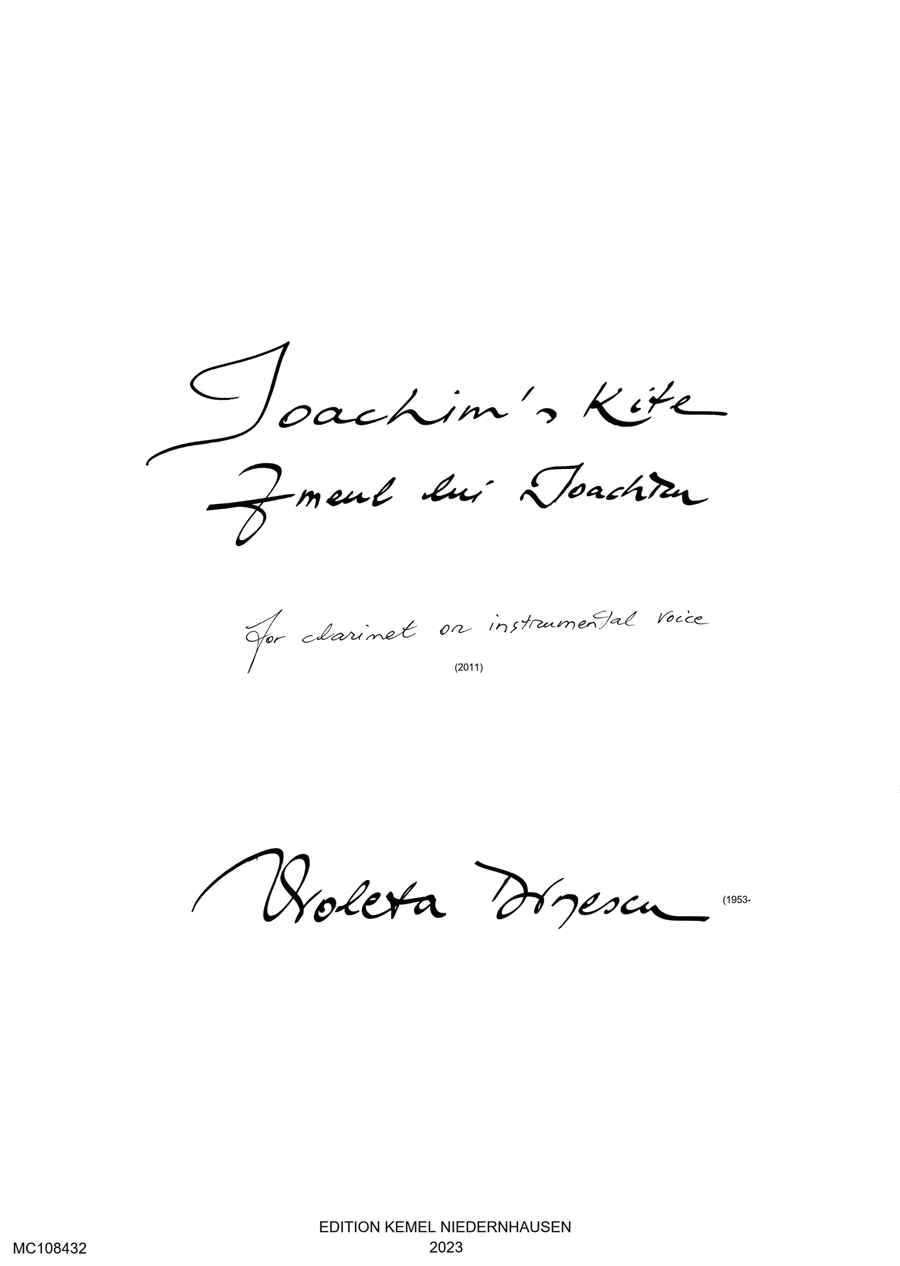 Joachim's Kite
Zmeul lui Joachim
for clarinet or instrumental voice
(2011)
Violeta Dinescu (1953-
EDITION KEMEL NIEDERNHAUSEN
MC108432 2023